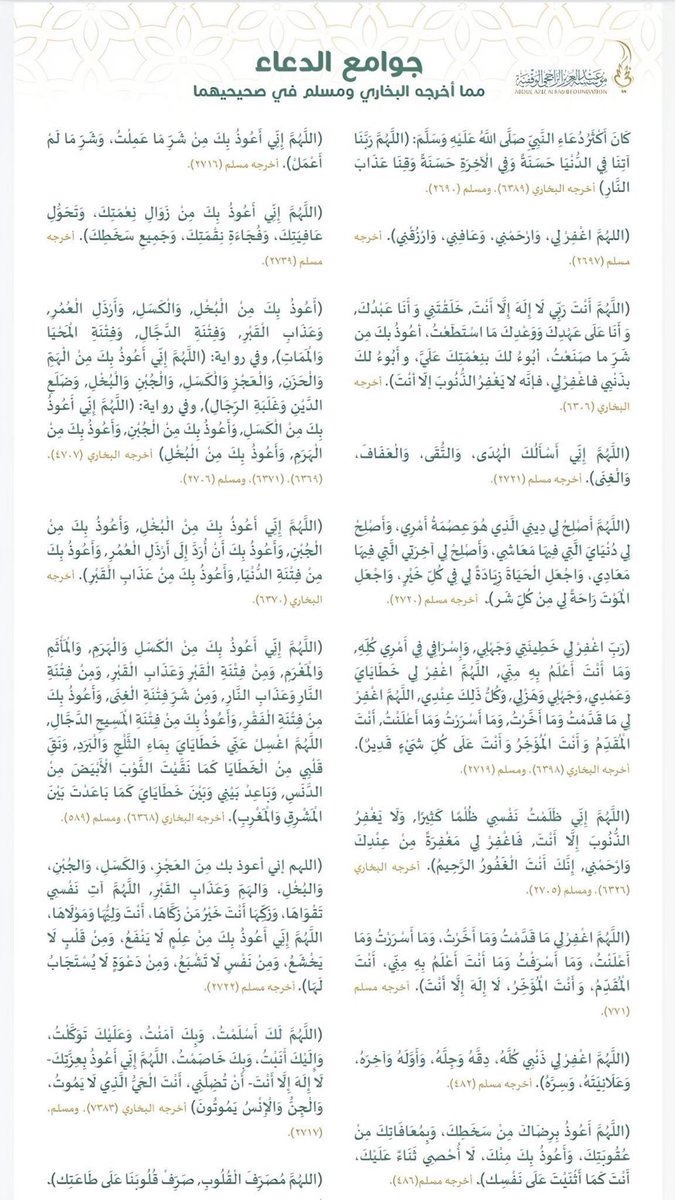 جوامع الدعاء
مما أخرجه البخاري ومسلم في صحيحيهما
مؤسسة عبدالعزيز الراجحي الوقفية
ABDUL AZIZ ALRAJHI FOUNDATION
كَانَ أَكْثَرُ دُعَاءِ النَّبِيِّ صَلَّى اللَّهُ عَلَيْهِ وَسَلَّمَ: (اللَّهُمَّ رَبَّنَا
آتِنَا فِي الدُّنْيَا حَسَنَةً وَفِي الْآخِرَةِ حَسَنَةً وَقِنَا عَذَابَ
النَّارِ) أخرجه البخاري (٦٣٨٩)، ومسلم (٢٦٩٠).
(اللهُمَّ اغْفِرْ لِي، وَارْحَمْنِي، وَعَافِنِي، وَارْزُقْنِي). أخرجه
مسلم (٢٦٩٧).
(اللَّهُمَّ أَنْتَ رَبِّي لَا إِلَهَ إِلَّا أَنْتَ, خَلَقْتَنِي وَأَنَا عَبْدُكَ,
وَأَنَا عَلَى عَهْدِكَ وَوَعْدِكَ مَا اسْتَطَعْتُ، أعُوذُ بكَ مِن
شَرِّ ما صَنَعْتُ، أبُوءُ لكَ بنِعْمَتِكَ عَلَيَّ، وأَبُوءُ لكَ
بذَنْبِي فاغْفِرْ لِي، فإنَّه لا يَغْفِرُ الذُّنُوبَ إلَّا أنْتَ). أخرجه
البخاري (٦٣٠٦).
(اللَّهُمَّ إِنِّي أَسْأَلُكَ الْهُدَى، وَالتُّقَى، وَالْعَفَافَ،
وَالْغِنَى). أخرجه مسلم (٢٧٢١).
(اللَّهُمَّ أَصْلِحْ لِي دِينِي الَّذِي هُوَ عِصْمَةُ أَمْرِي، وَأَصْلِحْ
لِي دُنْيَايَ الَّتِي فِيهَا مَعَاشِي، وَأَصْلِحْ لِي آخِرَتِي الَّتِي فِيهَا
مَعَادِي، وَاجْعَلِ الْحَيَاةَ زِيَادَةً لِي فِي كُلِّ خَيْرٍ، وَاجْعَلِ
الْمَوْتَ رَاحَةً لِي مِنْ كُلِّ شَرٍّ). أخرجه مسلم (٢٧٢٠).
(رَبِّ اغْفِرْ لِي خَطِيئَتِي وَجَهْلِي, وَإِسْرَافِي فِي أَمْرِي كُلِّهِ,
وَمَا أَنْتَ أَعْلَمُ بِهِ مِنِّي, اللَّهُمَّ اغْفِرْ لِي خَطَايَايَ
وَعَمْدِي, وَجَهْلِي وَهَزْلِي, وَكُلُّ ذَلِكَ عِنْدِي, اللَّهُمَّ اغْفِرْ
لِي مَا قَدَّمْتُ وَمَا أَخَّرْتُ, وَمَا أَسْرَرْتُ وَمَا أَعْلَنْتُ, أَنْتَ
الْمُقَدِّمُ وَأَنْتَ الْمُؤَخِّرُ وَأَنْتَ عَلَى كُلِّ شَيْءٍ قَدِيرٌ).
أخرجه البخاري (٦٣٩٨)، ومسلم (٢٧١٩).
(اللَّهُمَّ إِنِّي ظَلَمْتُ نَفْسِي ظُلْمًا كَثِيرًا, وَلَا يَغْفِرُ
الذُّنُوبَ إِلَّا أَنْتَ, فَاغْفِرْ لِي مَغْفِرَةً مِنْ عِنْدِكَ
وَارْحَمْنِي, إِنَّكَ أَنْتَ الْغَفُورُ الرَّحِيمُ). أخرجه البخاري
(٦٣٢٦)، ومسلم (٢٧٠٥).
(اللَّهُمَّ اغْفِرْ لِي مَا قَدَّمْتُ وَمَا أَخَّرْتُ، وَمَا أَسْرَرْتُ وَمَا
أَعْلَنْتُ، وَمَا أَسْرَفْتُ وَمَا أَنْتَ أَعْلَمُ بِهِ مِنِّي، أَنْتَ
الْمُقَدِّمُ، وَأَنْتَ الْمُؤَخِّرُ، لَا إِلَهَ إِلَّا أَنْتَ). أخرجه مسلم
(٧٧١).
(اللَّهُمَّ اغْفِرْ لِي ذَنْبِي كُلَّهُ، دِقَّهُ وَجِلَّهُ، وَأَوَّلَهُ وَآخِرَهُ،
وَعَلَانِيَتَهُ، وَسِرَّهُ). أخرجه مسلم (٤٨٣).
(اللَّهُمَّ أَعُوذُ بِرِضَاكَ مِنْ سَخَطِكَ، وَبِمُعَافَاتِكَ مِنْ
عُقُوبَتِكَ، وَأَعُوذُ بِكَ مِنْكَ، لَا أُحْصِي ثَنَاءً عَلَيْكَ،
أَنْتَ كَمَا أَثْنَيْتَ عَلَى نَفْسِكَ). أخرجه مسلم(٤٨٦).
(اللَّهُمَّ إِنِّي أَعُوذُ بِكَ مِنْ شَرِّ مَا عَمِلْتُ، وَشَرِّ مَا لَمْ
أَعْمَلْ). أخرجه مسلم (٢٧١٦).
(اللَّهُمَّ إِنِّي أَعُوذُ بِكَ مِنْ زَوَالِ نِعْمَتِكَ، وَتَحَوُّلِ
عَافِيَتِكَ، وَفُجَاءَةِ نِقْمَتِكَ، وَجَمِيعِ سَخَطِكَ). أخرجه
مسلم (٢٧٣٩).
(أَعُوذُ بِكَ مِنْ الْبُخْلِ, وَالْكَسَلِ, وَأَرْذَلِ الْعُمُرِ,
وَعَذَابِ الْقَبْرِ, وَفِتْنَةِ الدَّجَّالِ, وَفِتْنَةِ الْمَحْيَا
وَالْمَمَاتِ)، وفي رواية: (اللَّهُمَّ إِنِّي أَعُوذُ بِكَ مِنْ الْهَمِّ
وَالْحَزَنِ, وَالْعَجْزِ وَالْكَسَلِ, وَالْجُبْنِ وَالْبُخْلِ, وَضَلَعِ
الدَّيْنِ وَغَلَبَةِ الرِّجَالِ)، وفي رواية: (اللَّهُمَّ إِنِّي أَعُوذُ
بِكَ مِنْ الْكَسَلِ, وَأَعُوذُ بِكَ مِنْ الْجُبْنِ, وَأَعُوذُ بِكَ مِنْ
الْهَرَمِ, وَأَعُوذُ بِكَ مِنْ الْبُخْلِ) أخرجه البخاري (٤٧٠٧)،
(٦٣٦٩)، (٦٣٧١)، ومسلم (٢٧٠٦).
(اللَّهُمَّ إِنِّي أَعُوذُ بِكَ مِنْ الْبُخْلِ, وَأَعُوذُ بِكَ مِنْ
الْجُبْنِ, وَأَعُوذُ بِكَ أَنْ أُرَدَّ إِلَى أَرْذَلِ الْعُمُرِ, وَأَعُوذُ بِكَ
مِنْ فِتْنَةِ الدُّنْيَا, وَأَعُوذُ بِكَ مِنْ عَذَابِ الْقَبْرِ). أخرجه
البخاري (٦٣٧٠).
(اللَّهُمَّ إِنِّي أَعُوذُ بِكَ مِنْ الْكَسَلِ وَالْهَرَمِ, وَالْمَأْثَمِ
وَالْمَغْرَمِ, وَمِنْ فِتْنَةِ الْقَبْرِ وَعَذَابِ الْقَبْرِ, وَمِنْ فِتْنَةِ
النَّارِ وَعَذَابِ النَّارِ, وَمِنْ شَرِّ فِتْنَةِ الْغِنَى, وَأَعُوذُ بِكَ
مِنْ فِتْنَةِ الْفَقْرِ, وَأَعُوذُ بِكَ مِنْ فِتْنَةِ الْمَسِيحِ الدَّجَّالِ,
اللَّهُمَّ اغْسِلْ عَنِّي خَطَايَايَ بِمَاءِ الثَّلْجِ وَالْبَرَدِ, وَنَقِّ
قَلْبِي مِنْ الْخَطَايَا كَمَا نَقَّيْتَ الثَّوْبَ الْأَبْيَضَ مِنْ
الدَّنَسِ, وَبَاعِدْ بَيْنِي وَبَيْنَ خَطَايَايَ كَمَا بَاعَدْتَ بَيْنَ
الْمَشْرِقِ وَالْمَغْرِبِ). أخرجه البخاري (٦٣٦٨)، ومسلم (٥٨٩).
(اللهم إني أعوذ بك مِنَ العَجْزِ، وَالكَسَلِ، وَالجُبْنِ،
وَالبُخْلِ، وَالهَمِّ وَعَذَابِ القَبْرِ, اللَّهُمَّ آتِ نَفْسِي
تَقْوَاهَا، وَزَكِّهَا أَنْتَ خَيْرُ مَنْ زَكَّاهَا، أَنْتَ وَلِيُّهَا وَمَوْلَاهَا،
اللَّهُمَّ إِنِّي أَعُوذُ بِكَ مِنْ عِلْمٍ لَا يَنْفَعُ، وَمِنْ قَلْبٍ لَا
يَخْشَعُ، وَمِنْ نَفْسٍ لَا تَشْبَعُ، وَمِنْ دَعْوَةٍ لَا يُسْتَجَابُ
لَهَا). أخرجه مسلم (٢٧٢٢).
(اللَّهُمَّ لَكَ أَسْلَمْتُ، وَبِكَ آمَنْتُ، وَعَلَيْكَ تَوَكَّلْتُ،
وَإِلَيْكَ أَنَبْتُ، وَبِكَ خَاصَمْتُ، اللَّهُمَّ إِنِّي أَعُوذُ بِعِزَّتِكَ-
لَا إِلَهَ إِلَّا أَنْتَ- أَنْ تُضِلَّنِي، أَنْتَ الْحَيُّ الَّذِي لَا يَمُوتُ،
وَالْجِنُّ وَالْإِنْسُ يَمُوتُونَ) أخرجه البخاري (٧٣٨٣)، ومسلم،
(٢٧١٧).
(اللهُمَّ مُصَرِّفَ الْقُلُوبِ, صَرِّفْ قُلُوبَنَا عَلَى طَاعَتِكَ).